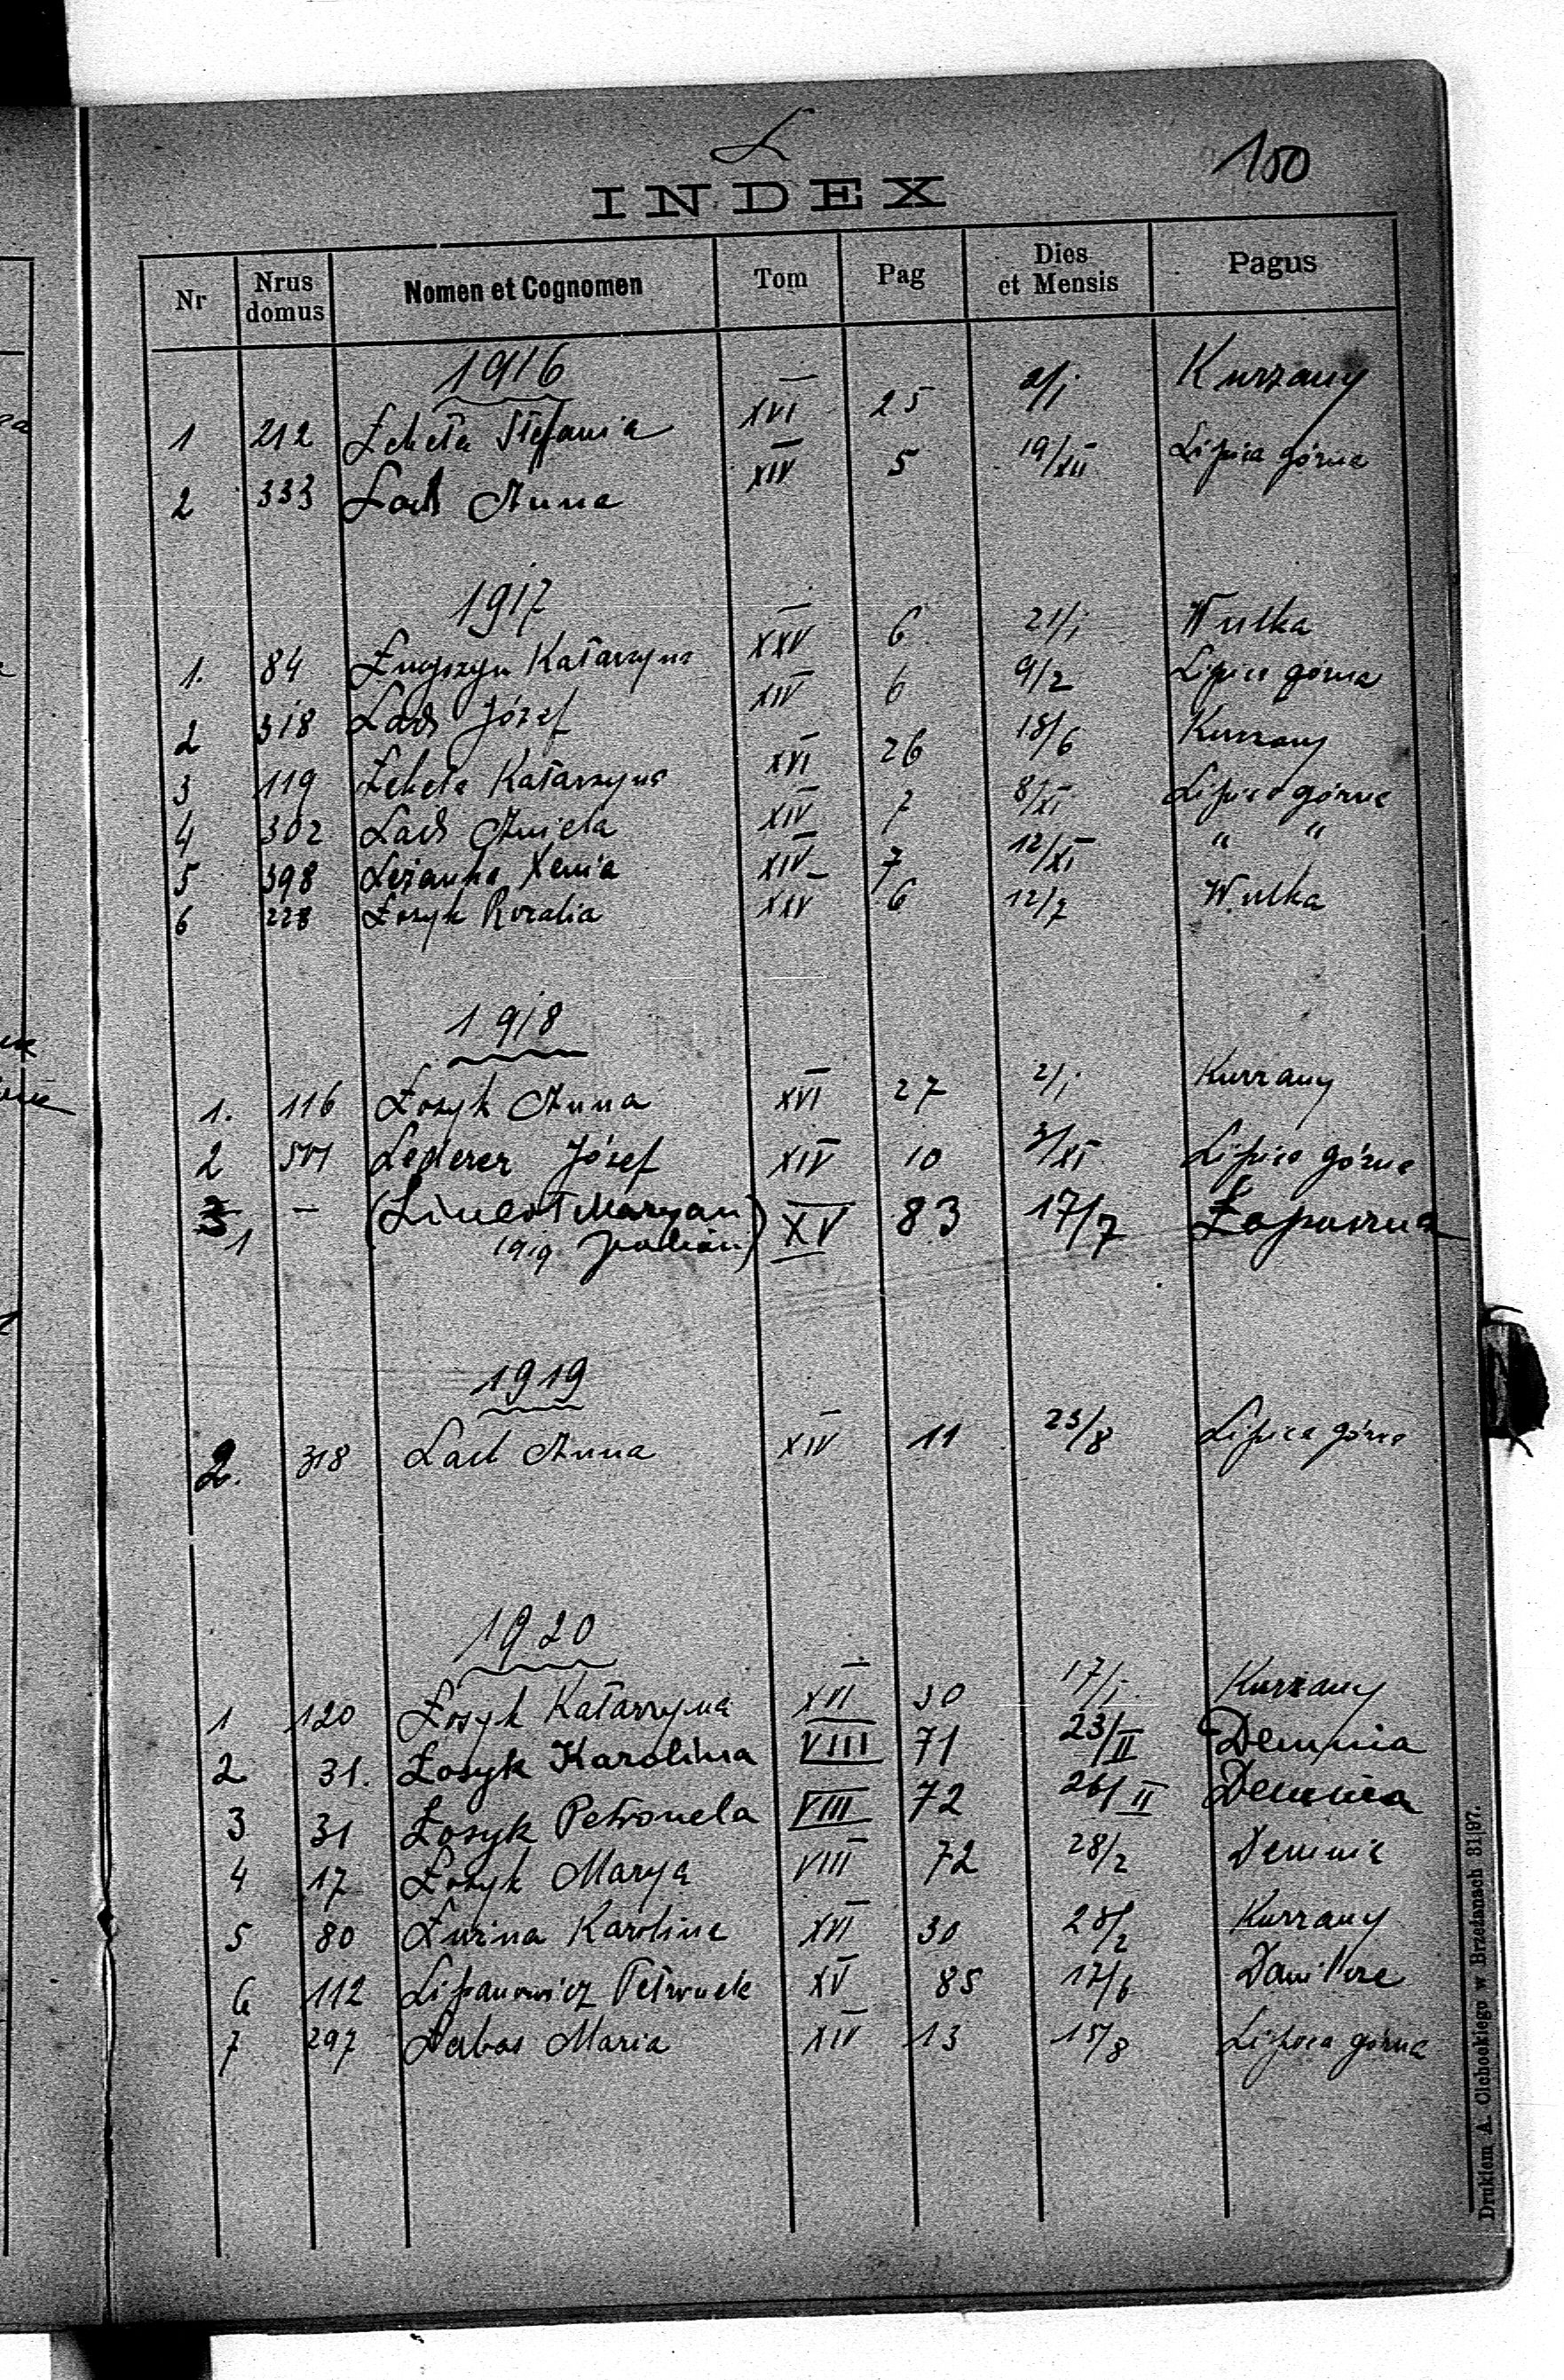 L
150
INDEX
Nr Nrus domus Nomen et Cognomen Tom Pag Dies et Mensis Pagus
1916
1 212 Łeheta Stefania XVI 25 2/1 Kurzany
2 333 Lach Anna XIV 5 19/XII Lipica górna
1917
1. 84 Katarzyna XXV 6 21/1 Wulka
2 318 Lach Józef XIV 6 9/2 Lipica górna
3 119 Łeheta Katarzyna XVI 26 18/6 Kurzany
4 302 Lach Aniela XIV 7 8/XI Lipica górna
5 398 Xenia XIV 7 12/XI " "
6 228 Łosyk Rozalia XXV 6 12/7 Wulka
1918
1. 116 Łosyk Anna XVI 27 2/1 Kurzany
2 Lederer Józef XIV 10 3/XI Lipica górna
3 – (Maryan XV 83 17/7
1 1919 Julian)
1919
2. 318 Lach Anna XIV 11 23/8 Lipica górna
1920
1 120 Łosyk Katarzyna XVI 30 17/1 Kurzany
2 31. Łosyk Karolina VIII 71 23/II Demnia
3 31 Łosyk Petronela VIII 72 26/II Demnia
4 17 Łosyk Marya VIII 72 28/2 Demnia
5 80 Karolina XVI 30 28/2 Kurzany
6 112 Lipanowicz Petronela XV 85 17/6
7 297 Łabas Maria XIV 13 15/8 Lipica górna
Drukiem A. Cichockiego w Brzeżanach 31|97.